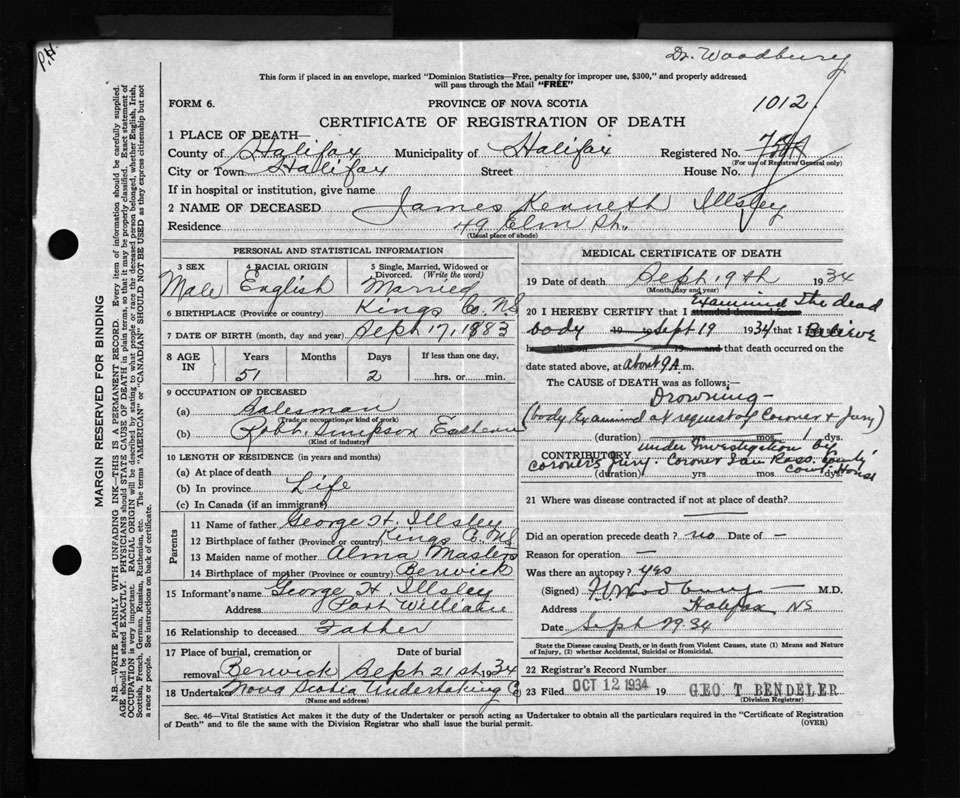 P.H.
Dr. Woodbury
This form if placed in an envelope, marked "Dominion Statistics—Free, penalty for improper use, $300," and properly addressed
will pass through the Mail "FREE"
FORM 6.
PROVINCE OF NOVA SCOTIA
1012
CERTIFICATE OF REGISTRATION OF DEATH
1 PLACE OF DEATH—
County of Halifax Municipality of Halifax Registered No.
(For use of Registrar General only)
City or Town Halifax Street House No.
If in hospital or institution, give name
2 NAME OF DECEASED James Kenneth Illsley
Residence 49 Elm St.
(Usual place of abode)
PERSONAL AND STATISTICAL INFORMATION
3 SEX 4 RACIAL ORIGIN 5 Single, Married, Widowed or Divorced. (Write the word)
Male English Married
6 BIRTHPLACE (Province or country) Kings Co. N.S
7 DATE OF BIRTH (month, day and year) Sept 17, 1883
8 AGE IN Years Months Days If less than one day,
51 2 hrs. or min.
9 OCCUPATION OF DECEASED
(a) Salesman
(Trade or occupation or kind of work)
(b) Robt. Simpson Eastern
(Kind of industry)
10 LENGTH OF RESIDENCE (in years and months)
(a) At place of death
(b) In province Life
(c) In Canada (if an immigrant)
Parents
11 Name of father George H. Illsley
12 Birthplace of father (Province or country) Kings Co. NS
13 Maiden name of mother Alma Masters
14 Birthplace of mother (Province or country) Berwick
15 Informant's name George H. Illsley
Address Port William
16 Relationship to deceased Father
17 Place of burial, cremation or removal Date of burial
Berwick Sept 21st 1934
18 Undertaker Nova Scotia Undertaking Co
(Name and address)
MEDICAL CERTIFICATE OF DEATH
19 Date of death Sept 19th 1934
(Month, day and year)
20 I HEREBY CERTIFY that I attended deceased from Examined the dead
body 19 Sept 19 1934 that I Believe
19 and that death occurred on the
date stated above, at about 9 A.m.
The CAUSE of DEATH was as follows:—
Drowning—
(body Examined at request of Coroner & Jury)
(duration) yrs mos 1 dys.
CONTRIBUTORY under Investigation by
coroner's Jury. Coroner Ross. County
Court House
(duration) yrs mos dys
21 Where was disease contracted if not at place of death?
Did an operation precede death? no Date of —
Reason for operation —
Was there an autopsy? yes
(Signed) Woodbury M.D.
Address Halifax NS
Date Sept 29.34
State the Disease causing Death, or in death from Violent Causes, state (1) Means and Nature
of Injury, (2) whether Accidental, Suicidal or Homicidal.
22 Registrar's Record Number
23 Filed OCT 12 1934 19 GEO. T BENDELER
(Division Registrar)
Sec. 46—Vital Statistics Act makes it the duty of the Undertaker or person acting as Undertaker to obtain all the particulars required in the "Certificate of Registration
of Death" and to file the same with the Division Registrar who shall issue the burial permit. (OVER)
MARGIN RESERVED FOR BINDING
N.B.—WRITE PLAINLY WITH UNFADING INK—THIS IS A PERMANENT RECORD. Every item of information should be carefully supplied.
AGE should be stated EXACTLY. PHYSICIANS should STATE CAUSE OF DEATH in plain terms, so that it may be properly classified. Exact statement of
OCCUPATION is very important. RACIAL ORIGIN will be described by stating to what people or race the deceased person belonged, whether English, Irish,
Scottish, French, German, Russian, Ruthenian, etc. The terms "AMERICAN" or "CANADIAN" SHOULD NOT BE USED as they express citizenship but not
a race or people. See instructions on back of certificate.